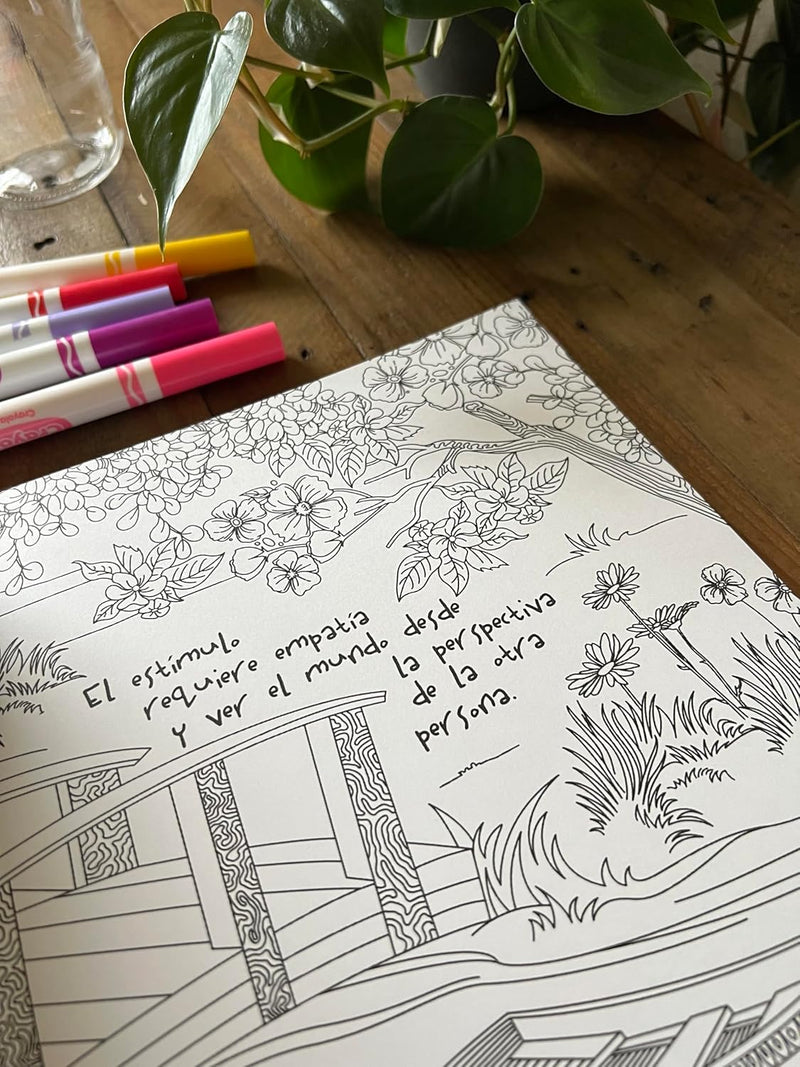 Crayola
El estímulo
requiere empatía
y ver el mundo desde
la perspectiva
de la otra
persona.